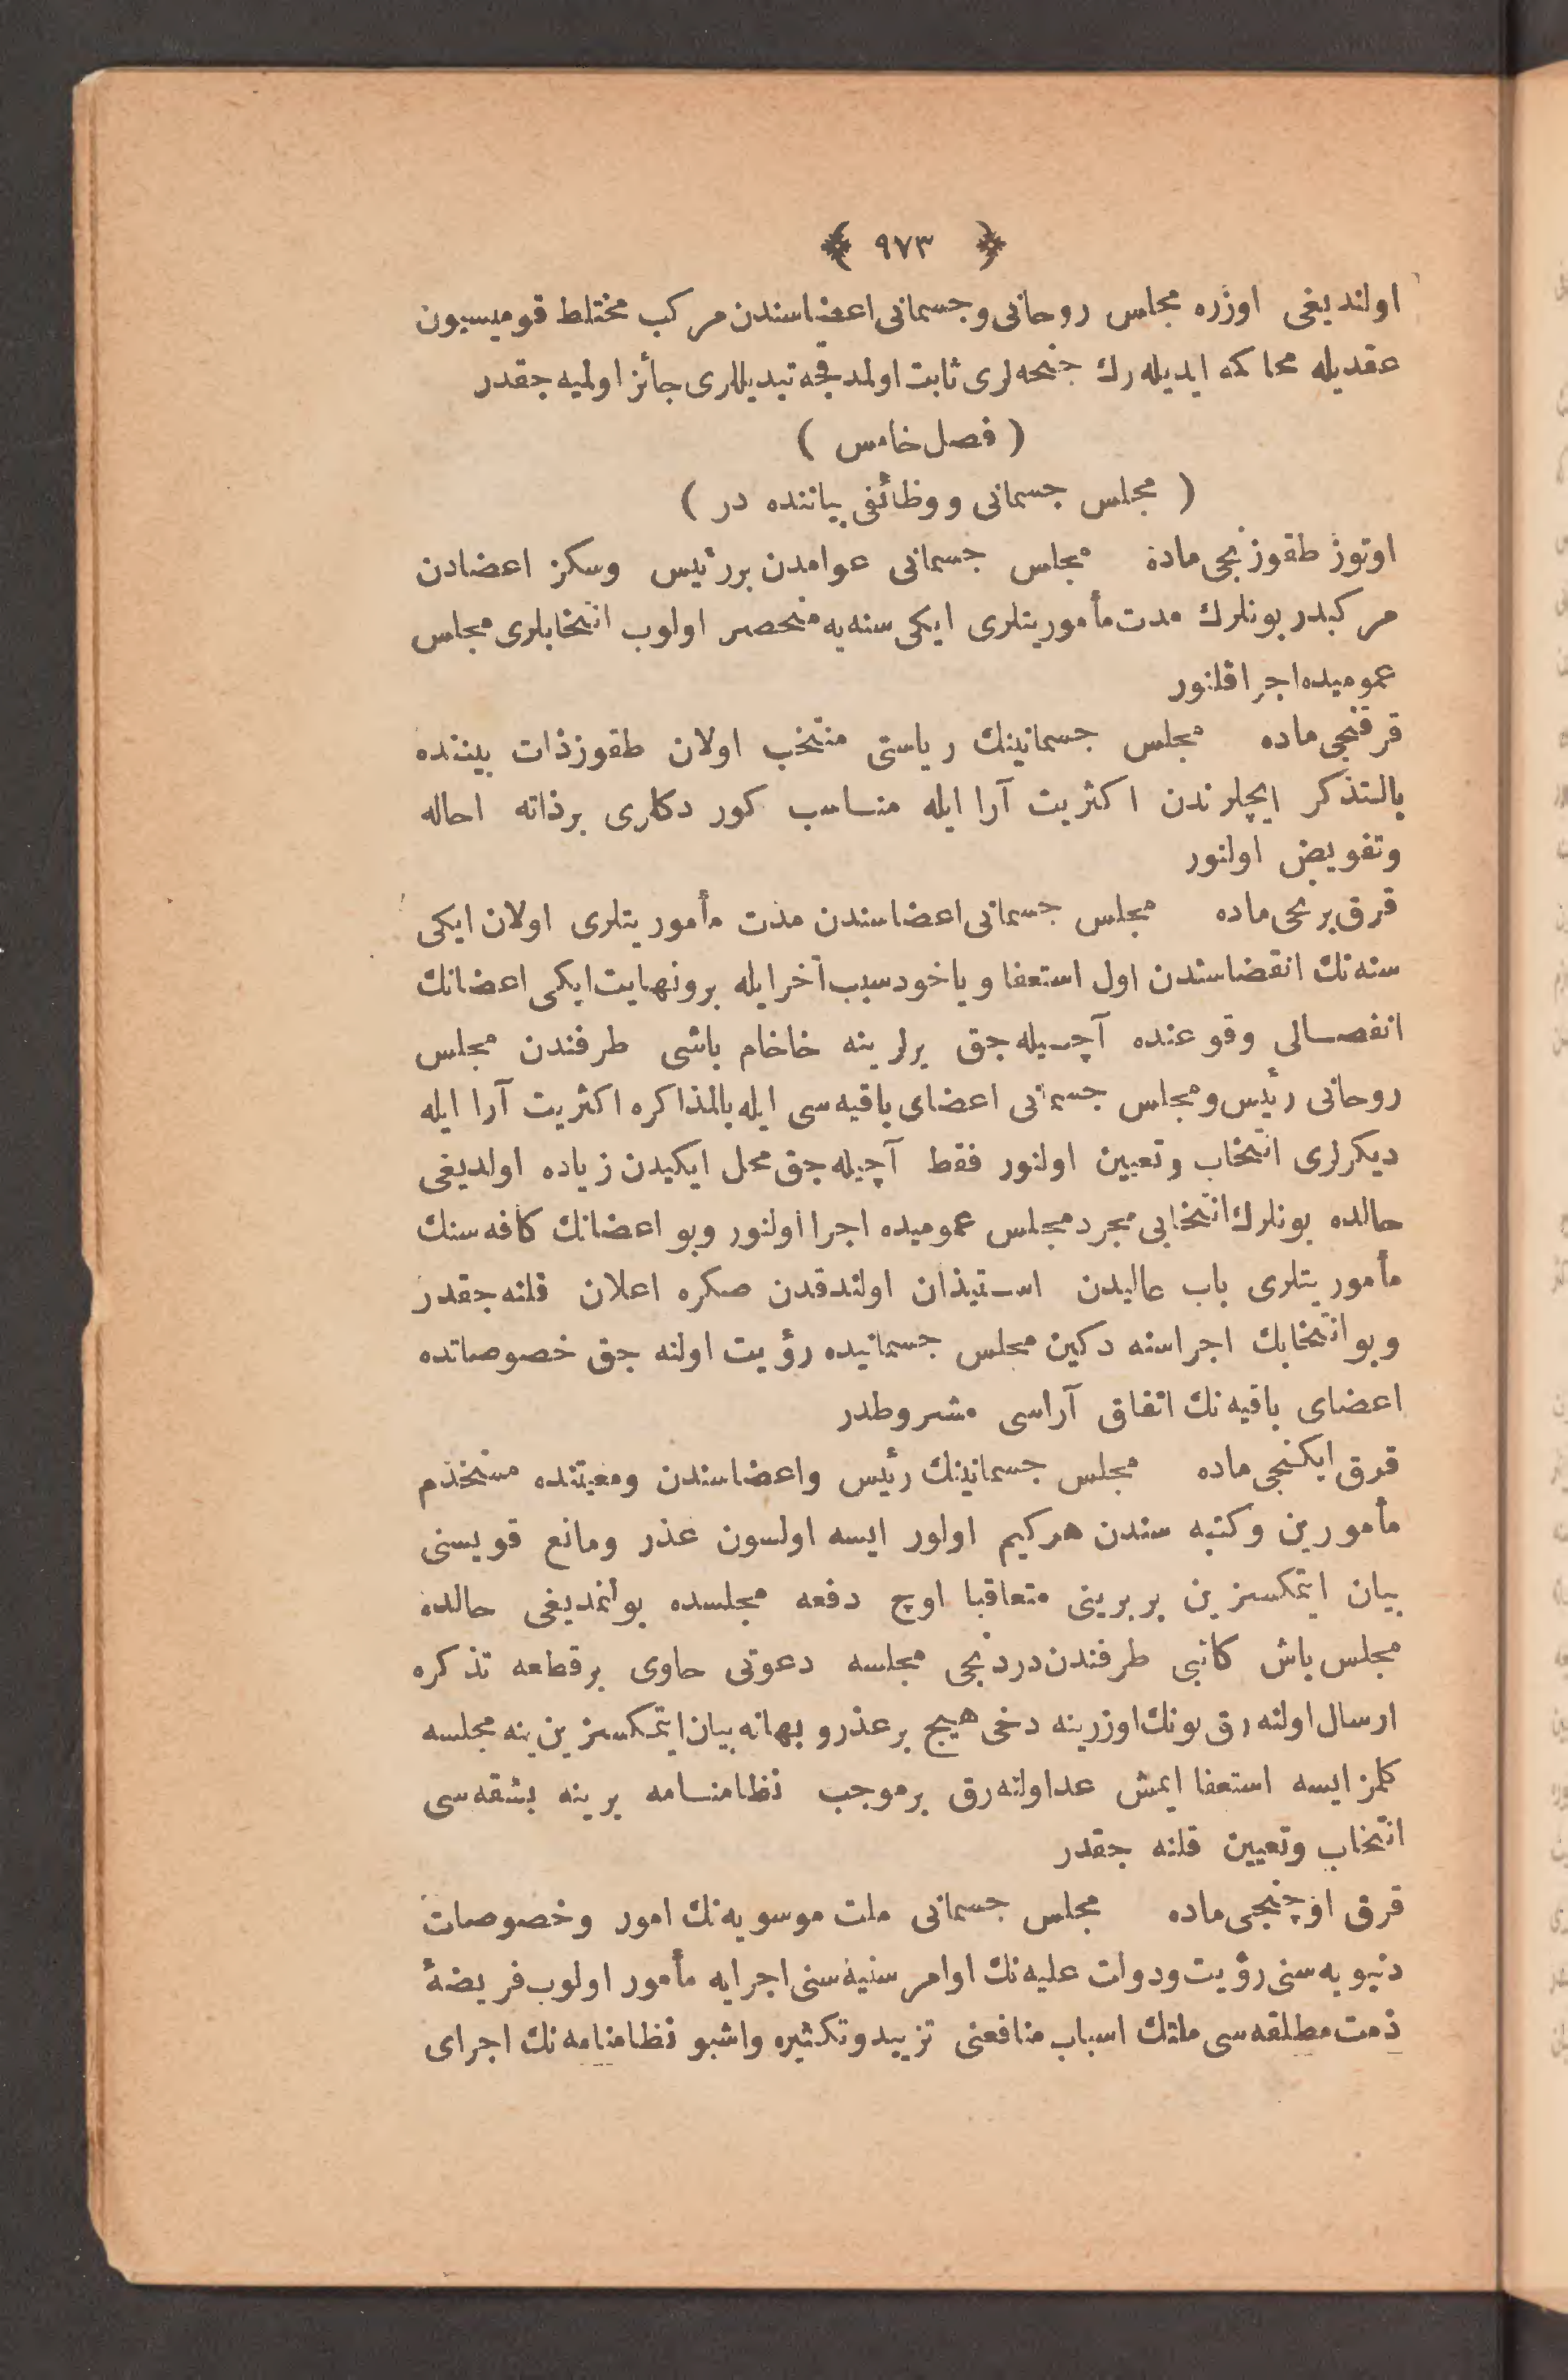 ﴿ ٩٧٣ ﴾
اولنديغی اوزره مجلس روحانی وجسمانی اعضاسندن مركب مختلط قوميسيون
عقديله محاكمه ايديله رك جنحه لری ثابت اولمدقجه تبديللری جائز اولميه جقدر
( فصل خامس )
( مجلس جسمانی ووظائفی بياننده در )
اوتوز طقوزنجی ماده مجلس جسمانی عوامدن بررئيس وسكز اعضادن
مركبدر بونلرك مدت مأموريتلری ايكی سنه يه منحصر اولوب انتخابلری مجلس
عموميده اجرا قلنور
قرقنجی ماده مجلس جسمانينك رياستی منتخب اولان طقوز ذات بيننده
بالتذكر ايچلرندن اكثريت آرا ايله مناسب كوردكلری برذاته احاله
وتفويض اولنور
قرق برنجی ماده مجلس جسمانی اعضاسندن مدت مأموريتلری اولان ايكی
سنه نك انقضاسندن اول استعفا وياخود سبب آخر ايله برونهايت ايكی اعضانك
انفصالی وقوعنده آچيله جق يرلرينه خاخام باشی طرفندن مجلس
روحانی رئيس ومجلس جسمانی اعضای باقيه سی ايله بالمذاكره اكثريت آرا ايله
ديكرلری انتخاب وتعيين اولنور فقط آچيله جق محل ايكيدن زياده اولديغی
حالده بونلرك انتخابی مجرد مجلس عموميده اجرا اولنور وبو اعضانك كافه سنك
مأموريتلری باب عاليدن استيذان اولندقدن صكره اعلان قلنه جقدر
وبو انتخابك اجراسنه دكين مجلس جسمانيده رؤيت اولنه جق خصوصاتده
اعضای باقيه نك اتفاق آراسی مشروطدر
قرق ايكنجی ماده مجلس جسمانينك رئيس واعضاسندن ومعيتنده مستخدم
مأمورين وكتبه سندن هركيم اولور ايسه اولسون عذر ومانع قويسنی
بيان ايتمكسزين بربرينی متعاقبا اوچ دفعه مجلسده بولنمديغی حالده
مجلس باش كاتبی طرفندن دردنجی مجلسه دعوتی حاوی برقطعه تذكره
ارسال اولنه رق بونك اوزرينه دخی هيچ برعذر وبهانه بيان ايتمكسزين ينه مجلسه
كلمز ايسه استعفا ايتمش عد اولنه رق برموجب نظامنامه يرينه بشقه سی
انتخاب وتعيين قلنه جقدر
قرق اوچنجی ماده مجلس جسمانی ملت موسويه نك امور وخصوصات
دنيويه سنی رؤيت ودولت عليه نك اوامر سنيه سنی اجرايه مأمور اولوب فريضۀ
ذمت مطلقه سی ملتك اسباب منافعنی تزييد وتكثيره واشبو نظامنامه نك اجرای